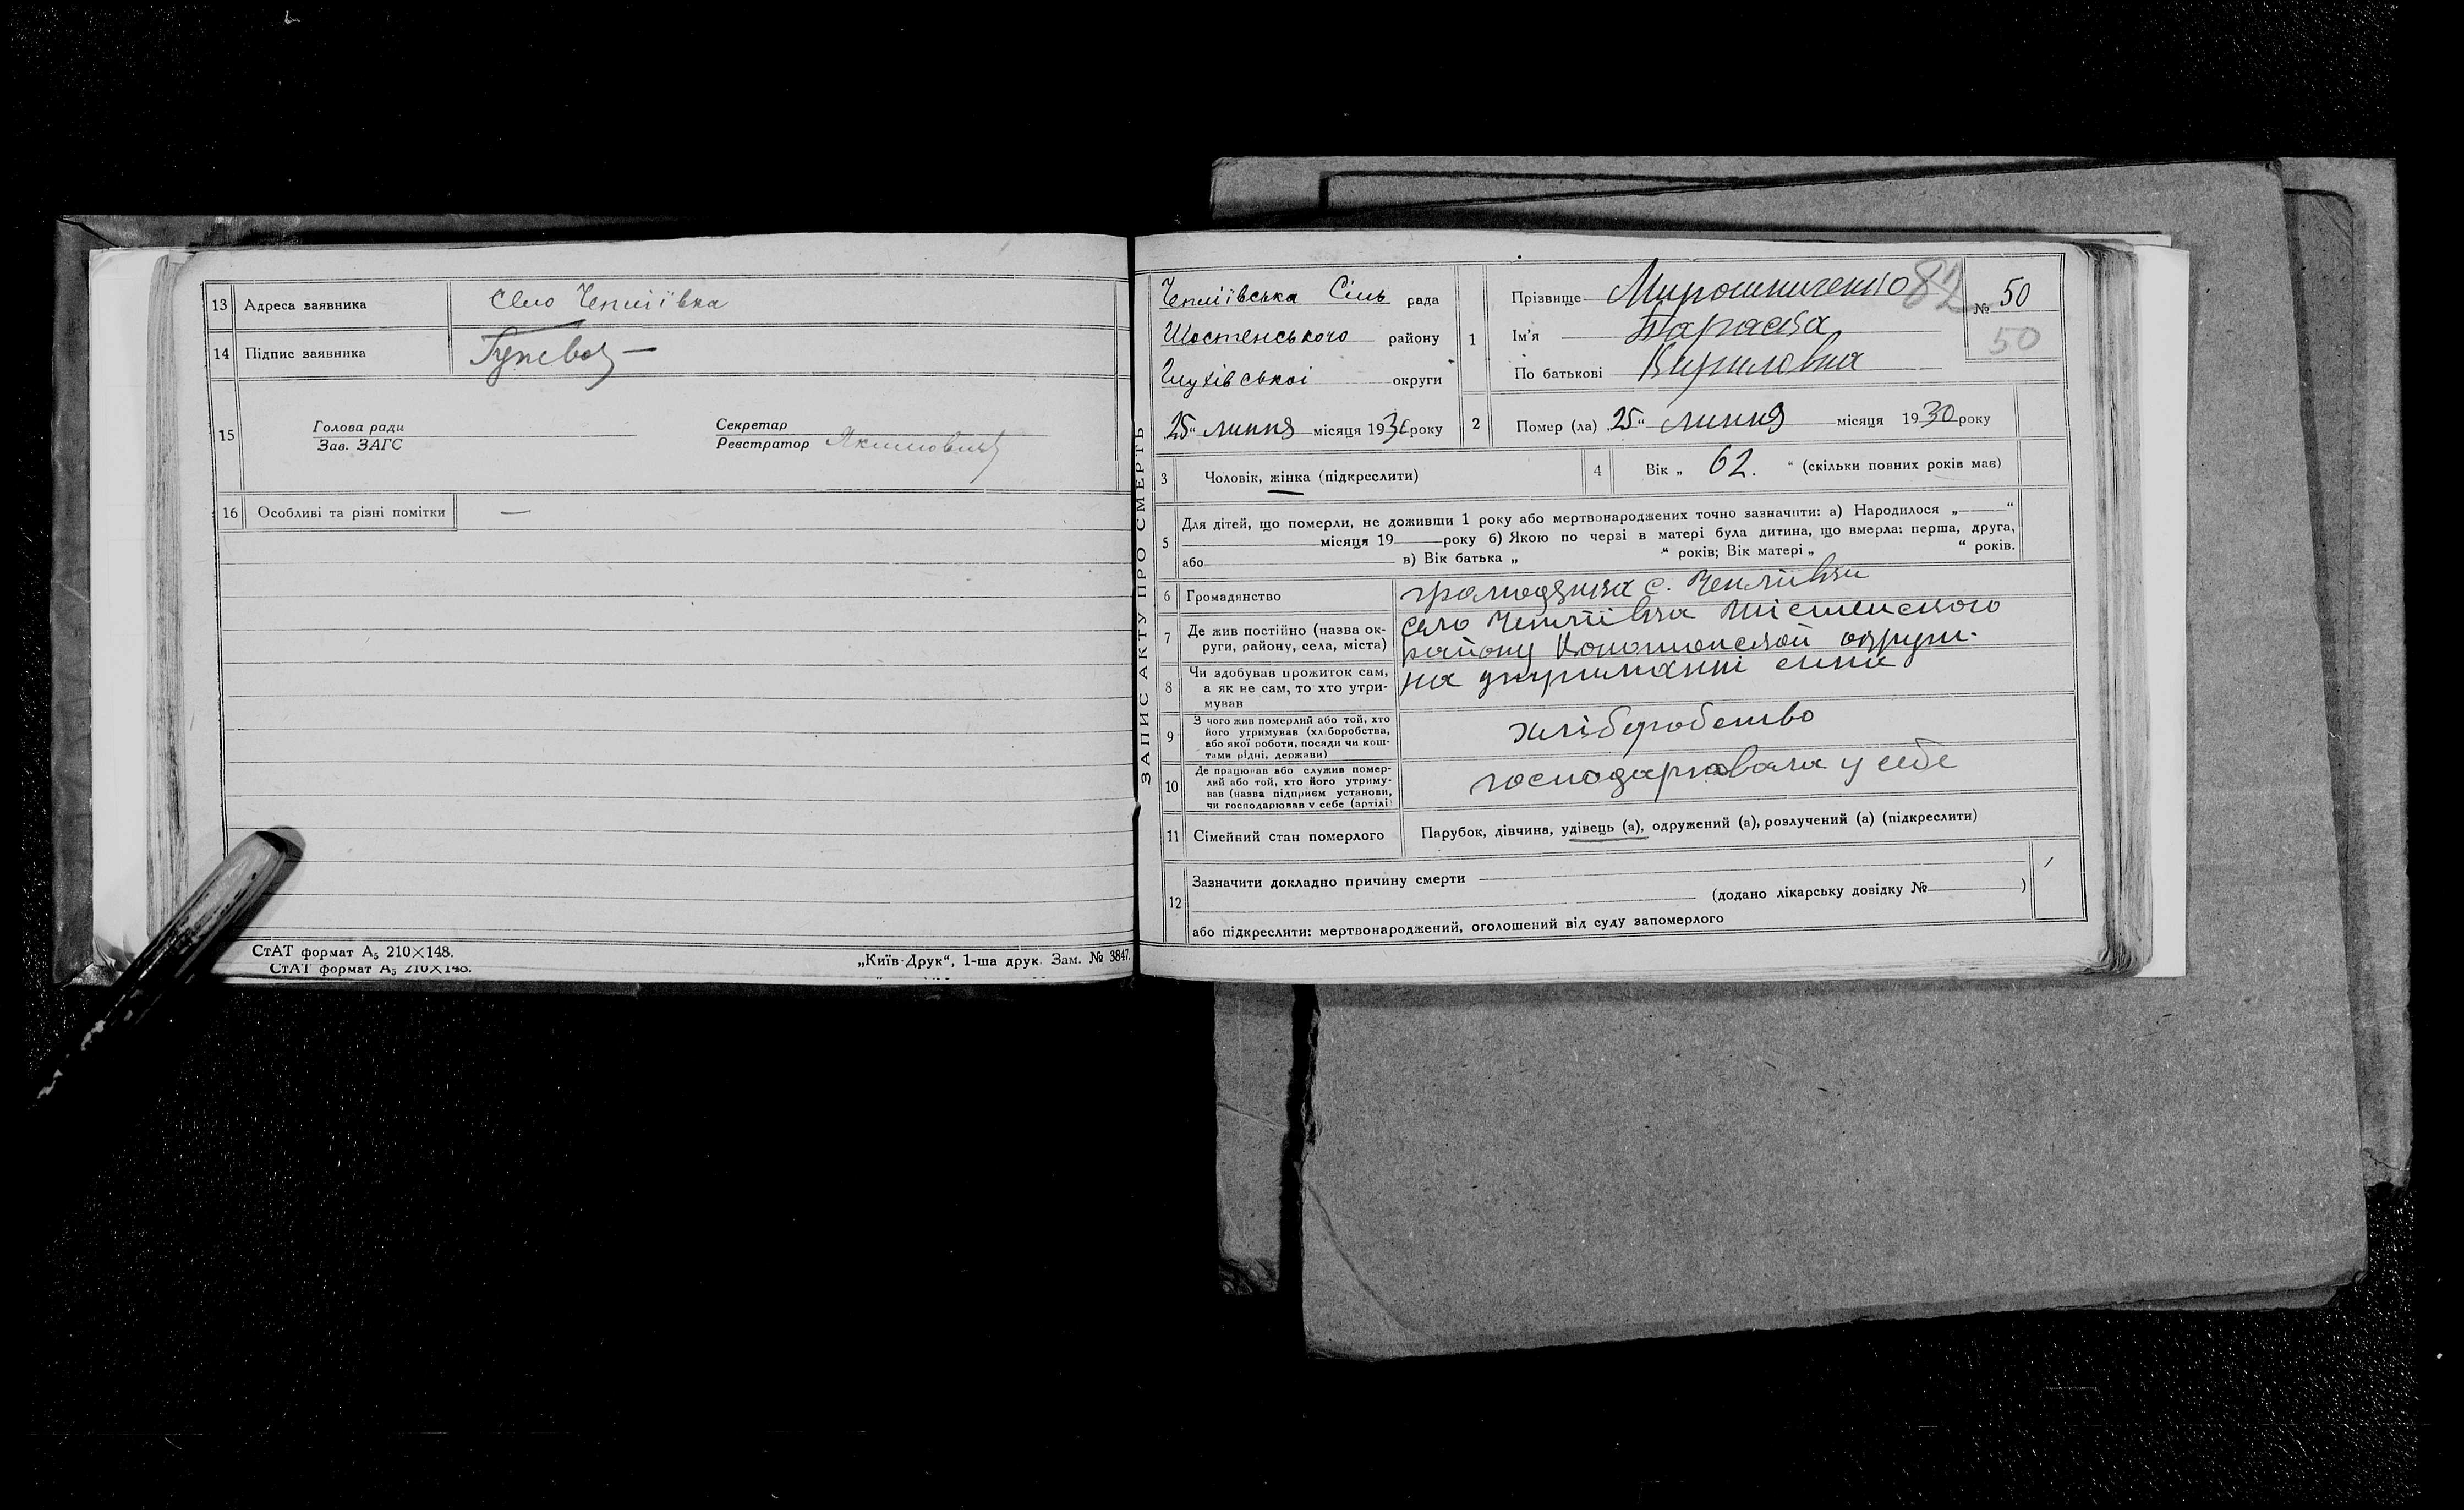 13 Адреса заявника село Чепліївка
14 Підпис заявника
15 Голова ради Секретар
Зав. ЗАГС Реєстратор
16 Особливі та різні помітки —
СтАТ формат А₅ 210×148.
СтАТ формат А₅ 210×148.
„Київ-Друк“, 1-ша друк. Зам. № 3847.
ЗАПИС АКТУ ПРО СМЕРТЬ
Чепліївська Сіль рада
Шостенського району
Глухівської округи
25“ липня місяця 1930 року
1 Прізвище Мирошниченко 82
Ім'я Параска
По батькові Кириловна
№ 50
50
2 Помер (ла) „25“ липня місяця 1930 року
3 Чоловік, жінка (підкреслити)
4 Вік „ 62. “ (скільки повних років має)
5 Для дітей, що померли, не доживши 1 року або мертвонароджених точно зазначити: а) Народилося „ “
місяця 19 року б) Якою по черзі в матері була дитина, що вмерла: перша, друга,
або в) Вік батька „ “ років; Вік матері „ “ років.
6 Громадянство громадянка с. Чепліївки
7 Де жив постійно (назва ок- село Чепліївка Шостенского
руги, району, села, міста) району Конотопской округи.
8 Чи здобував прожиток сам, на утриманні сина
а як не сам, то хто утри-
мував
9 З чого жив померлий або той, хто
його утримував (хліборобства, хліборобство
або якої роботи, посади чи кош-
тами рідні, держави)
10 Де працював або служив помер-
лий або той, хто його утриму- господарювала у себе
вав (назва підприєм установи,
чи господарював у себе (артілі)
11 Сімейний стан померлого Парубок, дівчина, удівець (а), одружений (а), розлучений (а) (підкреслити)
12 Зазначити докладно причину смерти
(додано лікарську довідку № )
або підкреслити: мертвонароджений, оголошений від суду запомерлого